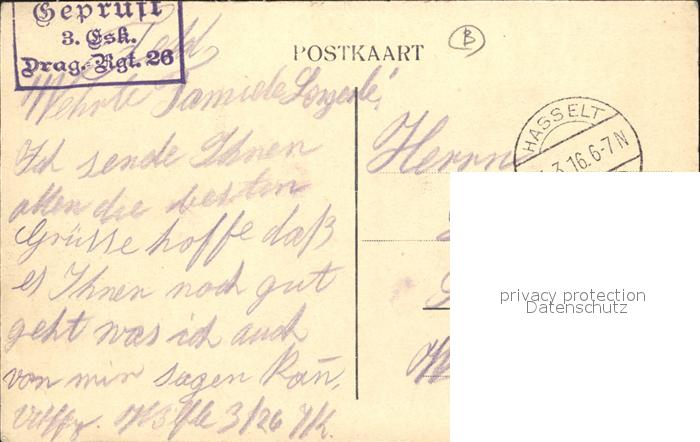 Geprüft
3. Esk.
Drag.-Rgt. 26
POSTKAART
B
Feld
Werte Familie
Ich sende Ihnen
allen die besten
Grüsse hoffe daß
es Ihnen noch gut
geht was ich auch
von mir sagen kan̄.
3/26
Herrn
HASSELT
3.16.6-7N
privacy protection
Datenschutz